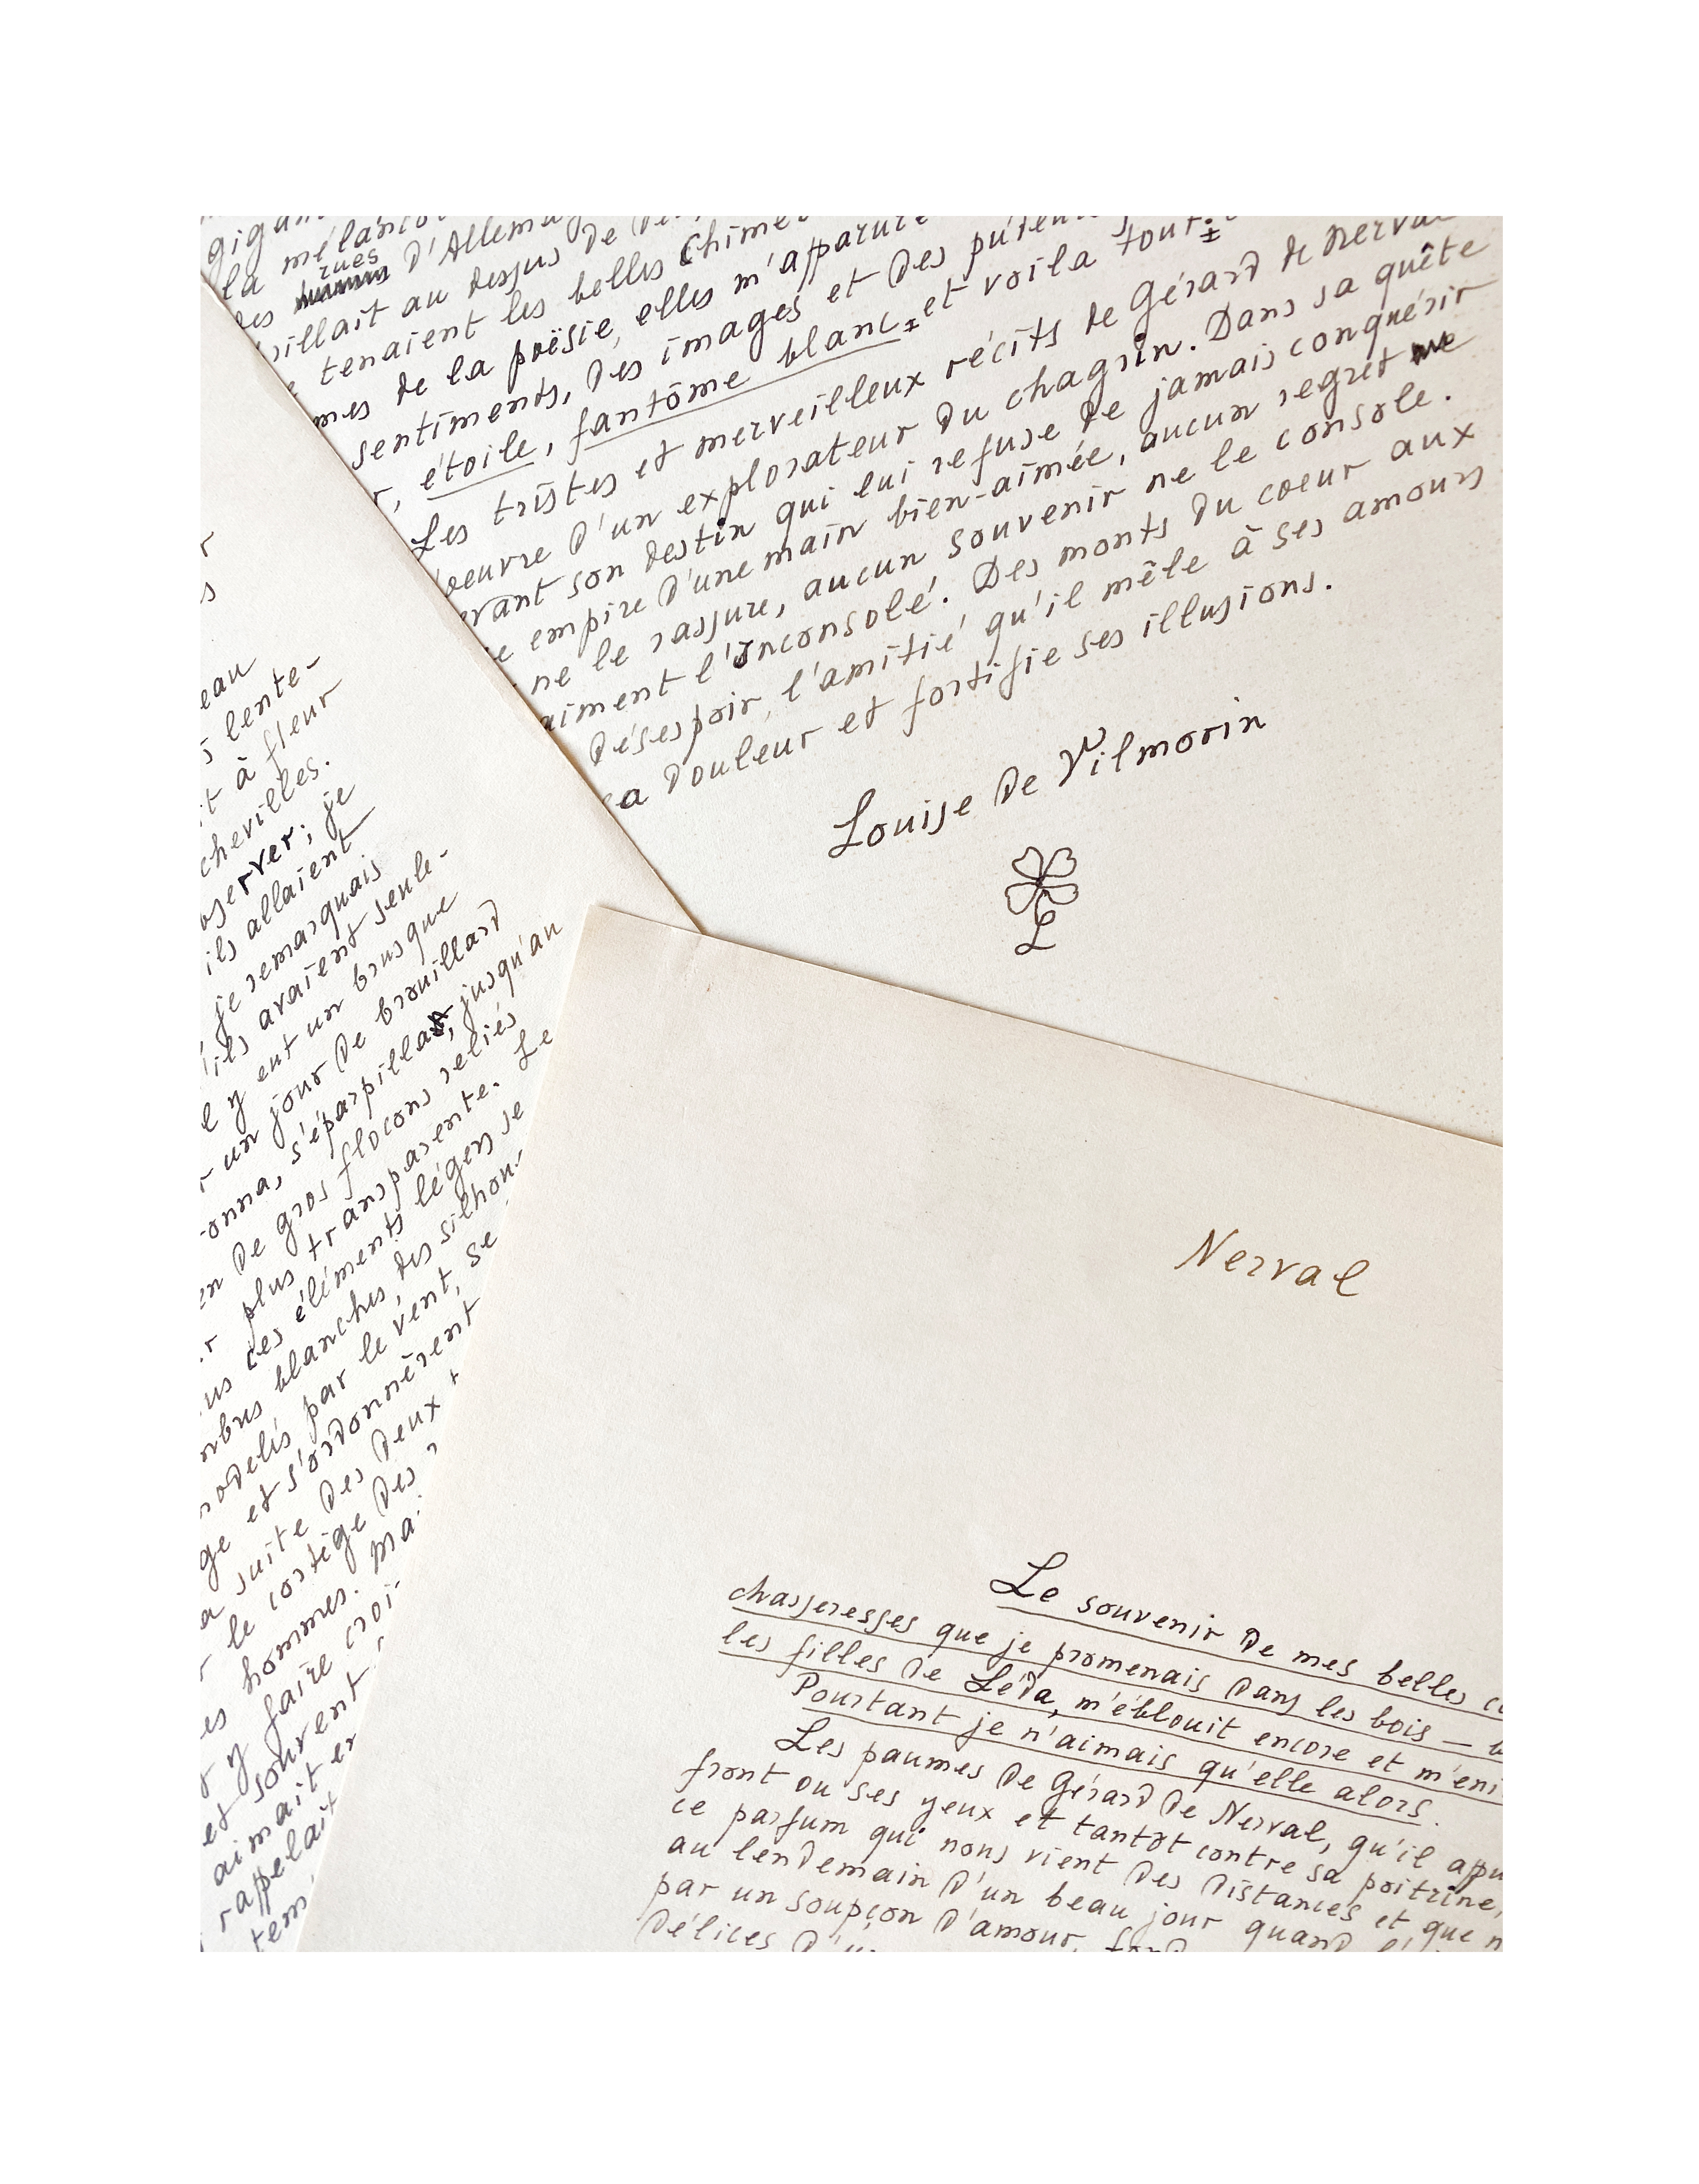 la
rues
des d'Allemag
au dessus de
tenaient les belles Chimè
mes de la poësie, elles m'apparure
sentiments, des images et des
étoile, fantôme blanc et voila tout
Les tristes et merveilleux récits de Gérard de Nerval
oeuvre d'un explorateur du chagrin. Dans sa quête
son destin qui lui refuse de jamais conquérir
empire d'une main bien-aimée, aucun regret
ne le rassure, aucun souvenir ne le console.
aiment l'Inconsolé. Des monts du coeur aux
désespoir, l'amitié qu'il mêle à ses amours
sa douleur et fortifie ses illusions.
Louise de Vilmorin
L
eau
lente-
à fleur
chevilles.
server; je
ils allaient
je remarquais
ils avaient seule-
y eut un brusque
un jour de brouillard
onna, s'éparpilla, jusqu'au
en de gros flocons reliés
plus transparente. Le
ces éléments légers se
blanches, des silhou-
modelés par le vent, se
et s'ordonnèrent
suite des deux
le cortège des
hommes. Ma
y faire croi-
et souvent
aimait
rappelait
tem
Nerval
Le souvenir de mes belles
chasseresses que je promenais dans les bois —
les filles de Léda, m'éblouit encore et m'eni
Pourtant je n'aimais qu'elle alors.
Les paumes de Gérard de Nerval, qu'il appu
front ou ses yeux et tantôt contre sa poitrine,
ce parfum qui nous vient des distances et que n
au lendemain d'un beau jour quand
par un soupçon d'amour,
Délices